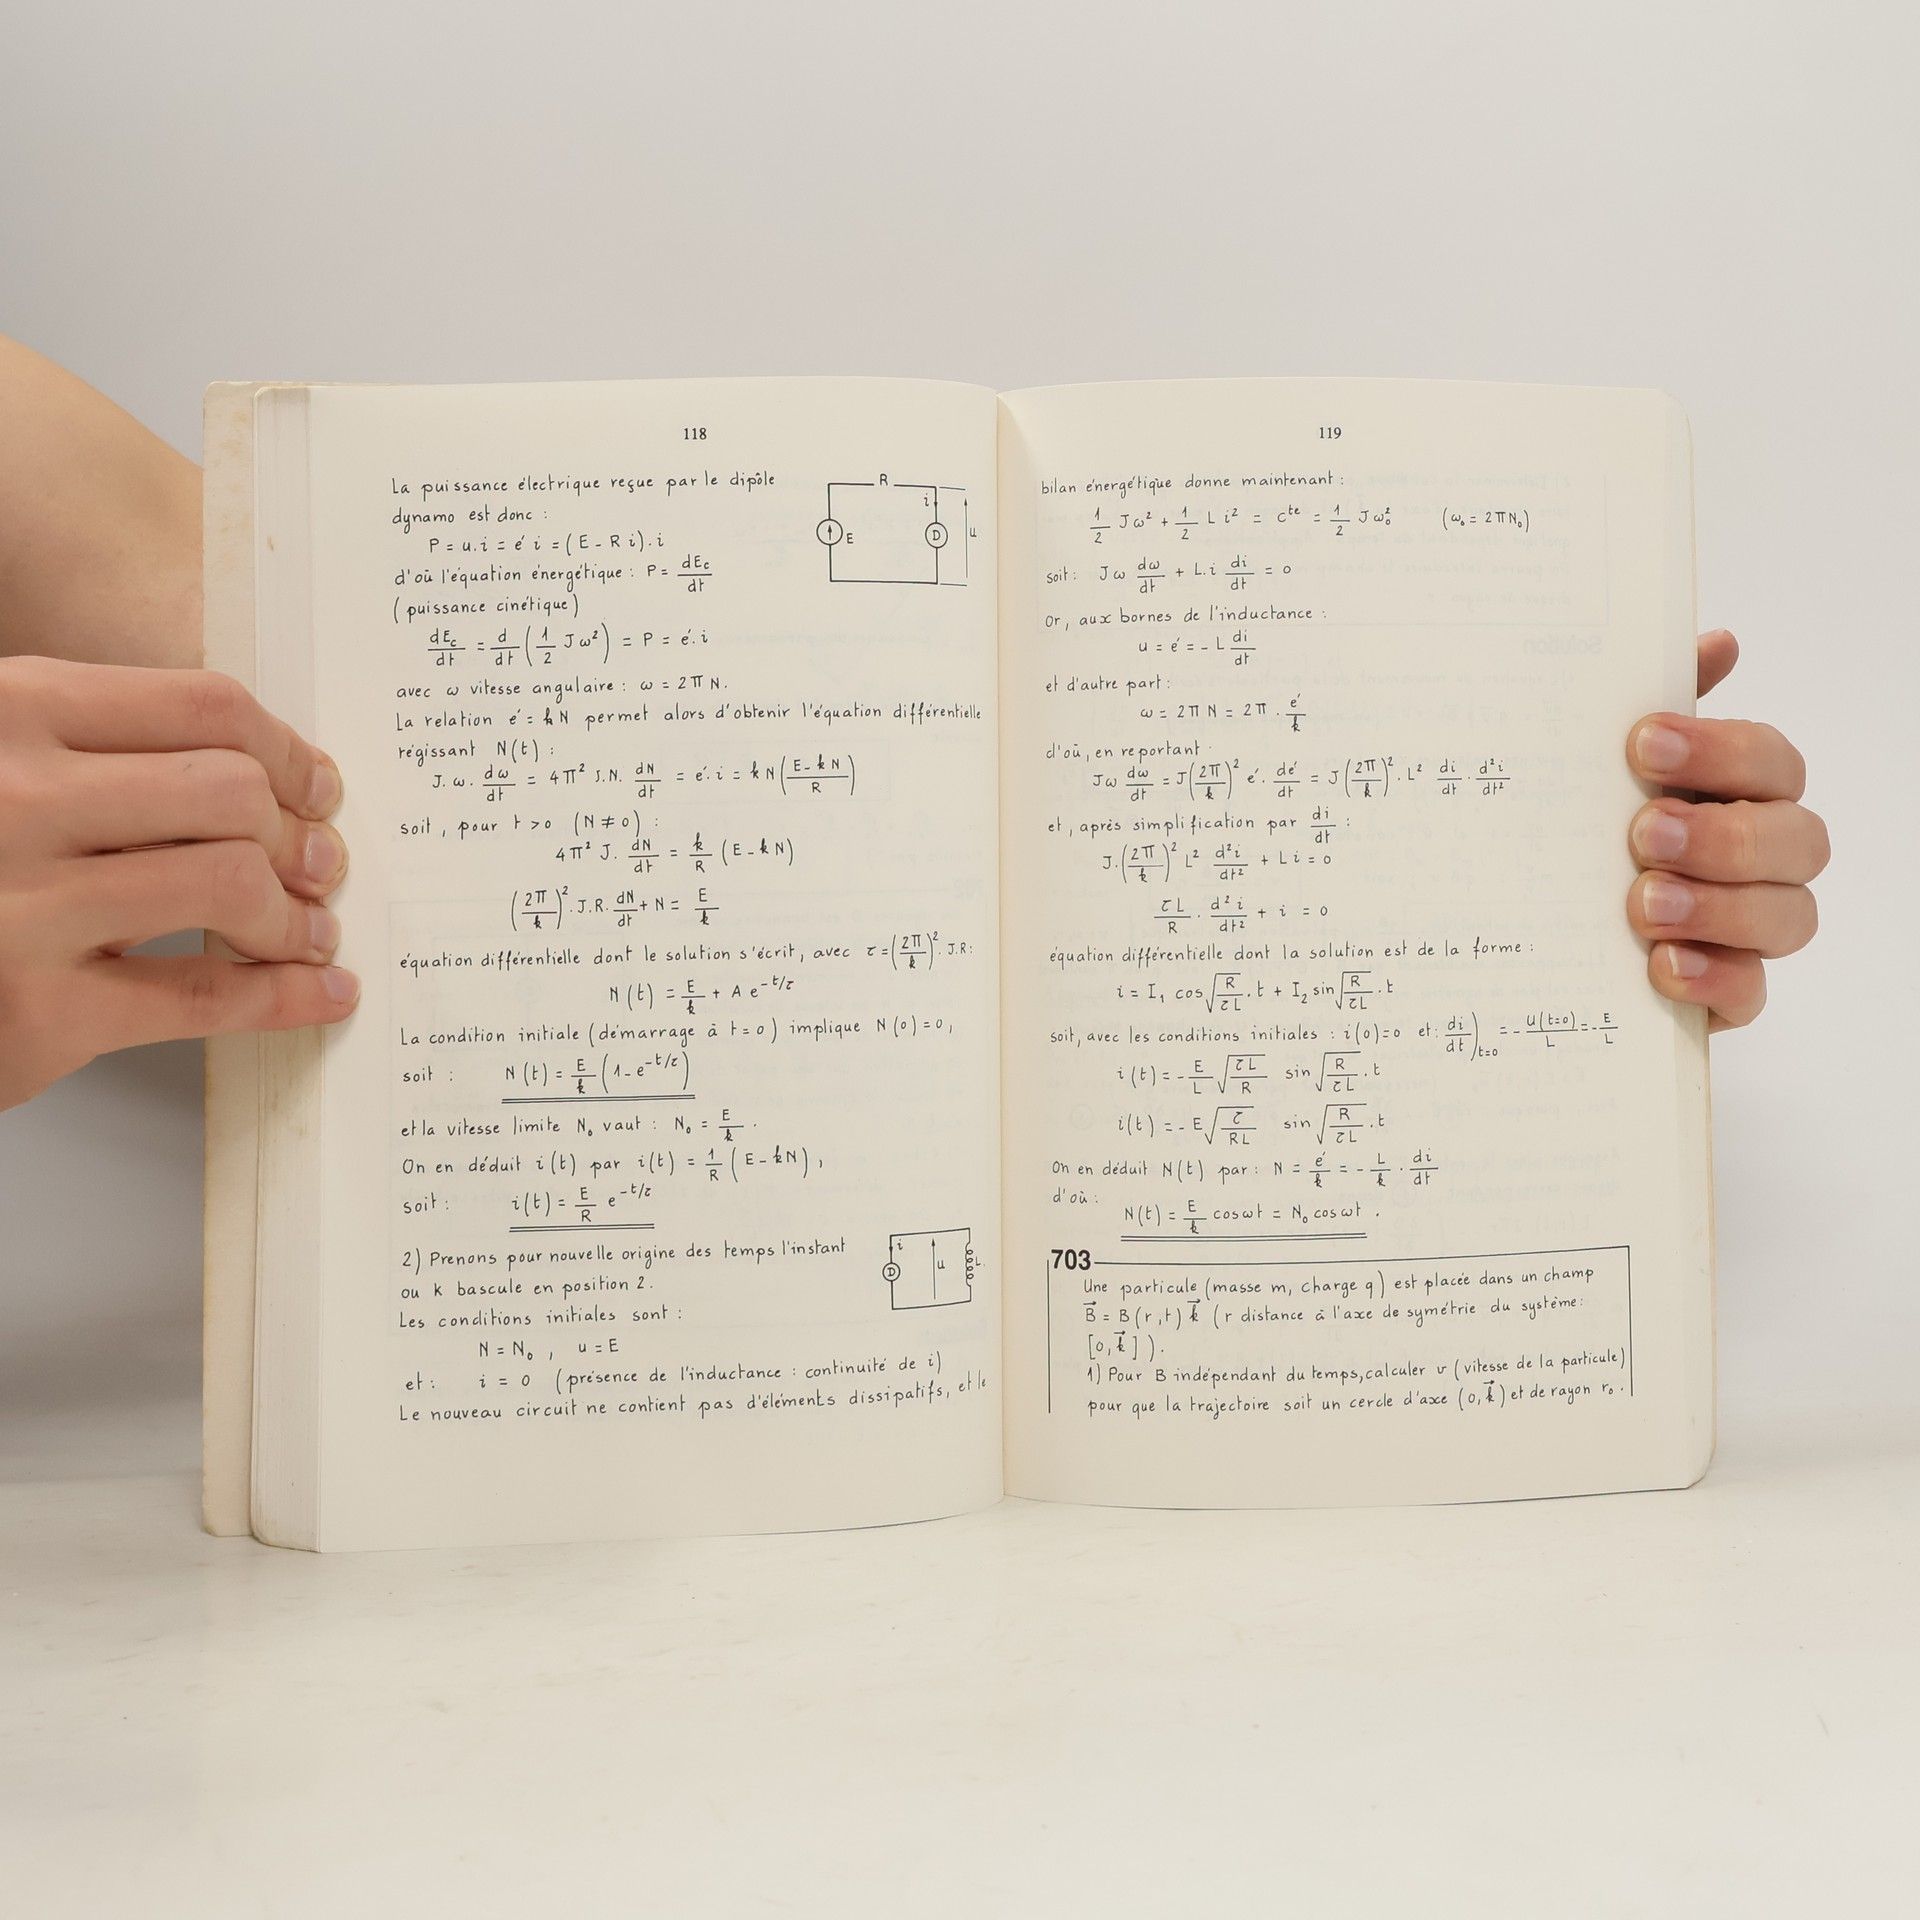 118
La puissance électrique reçue par le dipôle
dynamo est donc :
P = u.i = e' i = (E - R i).i
d'où l'équation énergétique : P = dEc/dt
(puissance cinétique)
dEc/dt = d/dt (1/2 J ω²) = P = e'.i
avec ω vitesse angulaire : ω = 2π N.
La relation e' = kN permet alors d'obtenir l'équation différentielle
régissant N(t) :
J. ω. dω/dt = 4π² J.N. dN/dt = e'.i = k N ((E - k N)/R)
soit, pour t > 0 (N ≠ 0) :
4π² J. dN/dt = k/R (E - k N)
(2π/k)². J.R. dN/dt + N = E/k
équation différentielle dont le solution s'écrit, avec τ = (2π/k)². J.R :
N(t) = E/k + A e^(-t/τ)
La condition initiale (démarrage à t = 0) implique N(0) = 0,
soit : N(t) = E/k (1 - e^(-t/τ))
et la vitesse limite N₀ vaut : N₀ = E/k .
On en déduit i(t) par i(t) = 1/R (E - kN) ,
soit : i(t) = E/R e^(-t/τ)
2) Prenons pour nouvelle origine des temps l'instant
où k bascule en position 2.
Les conditions initiales sont :
N = N₀ , u = E
et : i = 0 (présence de l'inductance : continuité de i)
Le nouveau circuit ne contient pas d'éléments dissipatifs, et le
R
i
E
D
u
i
D
u
L
119
bilan énergétique donne maintenant :
1/2 Jω² + 1/2 L i² = cte = 1/2 J ω₀² (ω₀ = 2π N₀)
soit : Jω dω/dt + L.i di/dt = 0
Or, aux bornes de l'inductance :
u = e' = - L di/dt
et d'autre part :
ω = 2π N = 2π . e'/k
d'où, en reportant
Jω dω/dt = J (2π/k)² e'. de'/dt = J (2π/k)². L² di/dt . d²i/dt²
et, après simplification par di/dt :
J. (2π/k)² L² d²i/dt² + L i = 0
τL/R . d²i/dt² + i = 0
équation différentielle dont la solution est de la forme :
i = I₁ cos √(R/τL) . t + I₂ sin √(R/τL) . t
soit, avec les conditions initiales : i(0)=0 et : di/dt)t=0 = - u(t=0)/L = - E/L
i(t) = - E/L √(τL/R) sin √(R/τL) . t
i(t) = - E √(τ/RL) sin √(R/τL) . t
On en déduit N(t) par : N = e'/k = - L/k . di/dt
d'où :
N(t) = E/k cos ωt = N₀ cos ωt .
703
Une particule (masse m, charge q) est placée dans un champ
B⃗ = B(r,t) k⃗ (r distance à l'axe de symétrie du système :
[0, k⃗] ).
1) Pour B indépendant du temps, calculer v (vitesse de la particule)
pour que la trajectoire soit un cercle d'axe (0, k⃗) et de rayon r₀.